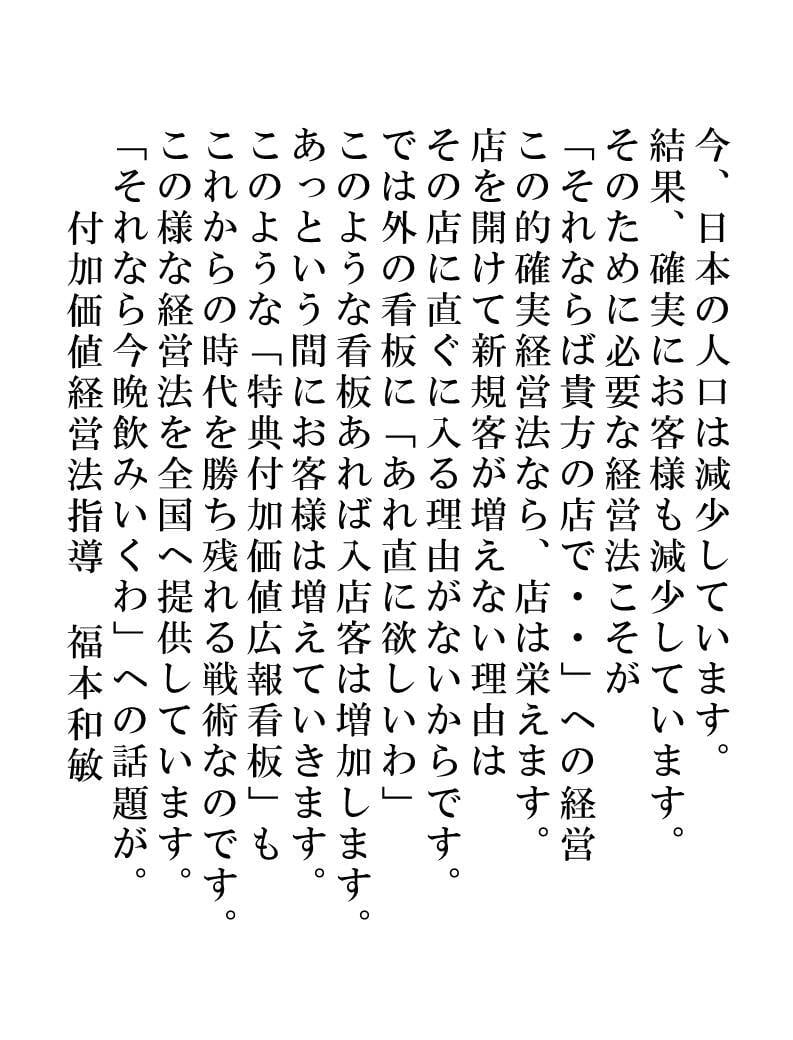 今、日本の人口は減少しています。
結果、確実にお客様も減少しています。
そのために必要な経営法こそが
「それならば貴方の店で・・」への経営
この的確実経営法なら、店は栄えます。
店を開けて新規客が増えない理由は
その店に直ぐに入る理由がないからです。
では外の看板に「あれ直に欲しいわ」
このような看板あれば入店客は増加します。
あっという間にお客様は増えていきます。
このような「特典付加価値広報看板」も
これからの時代を勝ち残れる戦術なのです。
この様な経営法を全国へ提供しています。
「それなら今晩飲みいくわ」への話題が。
付加価値経営法指導　福本和敏